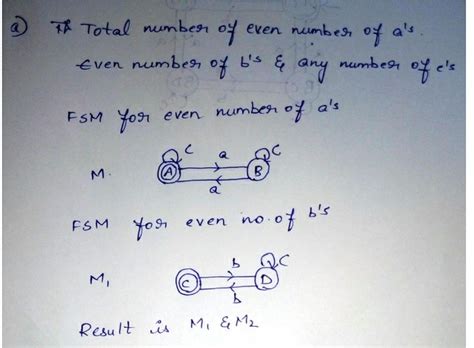 a) Total number of even number of a's.
Even number of b's & any number of c's
FSM for even number of a's
C a C
M. A B
a
FSM for even no. of b's
b C
M1 C D
b
Result is M1 & M2